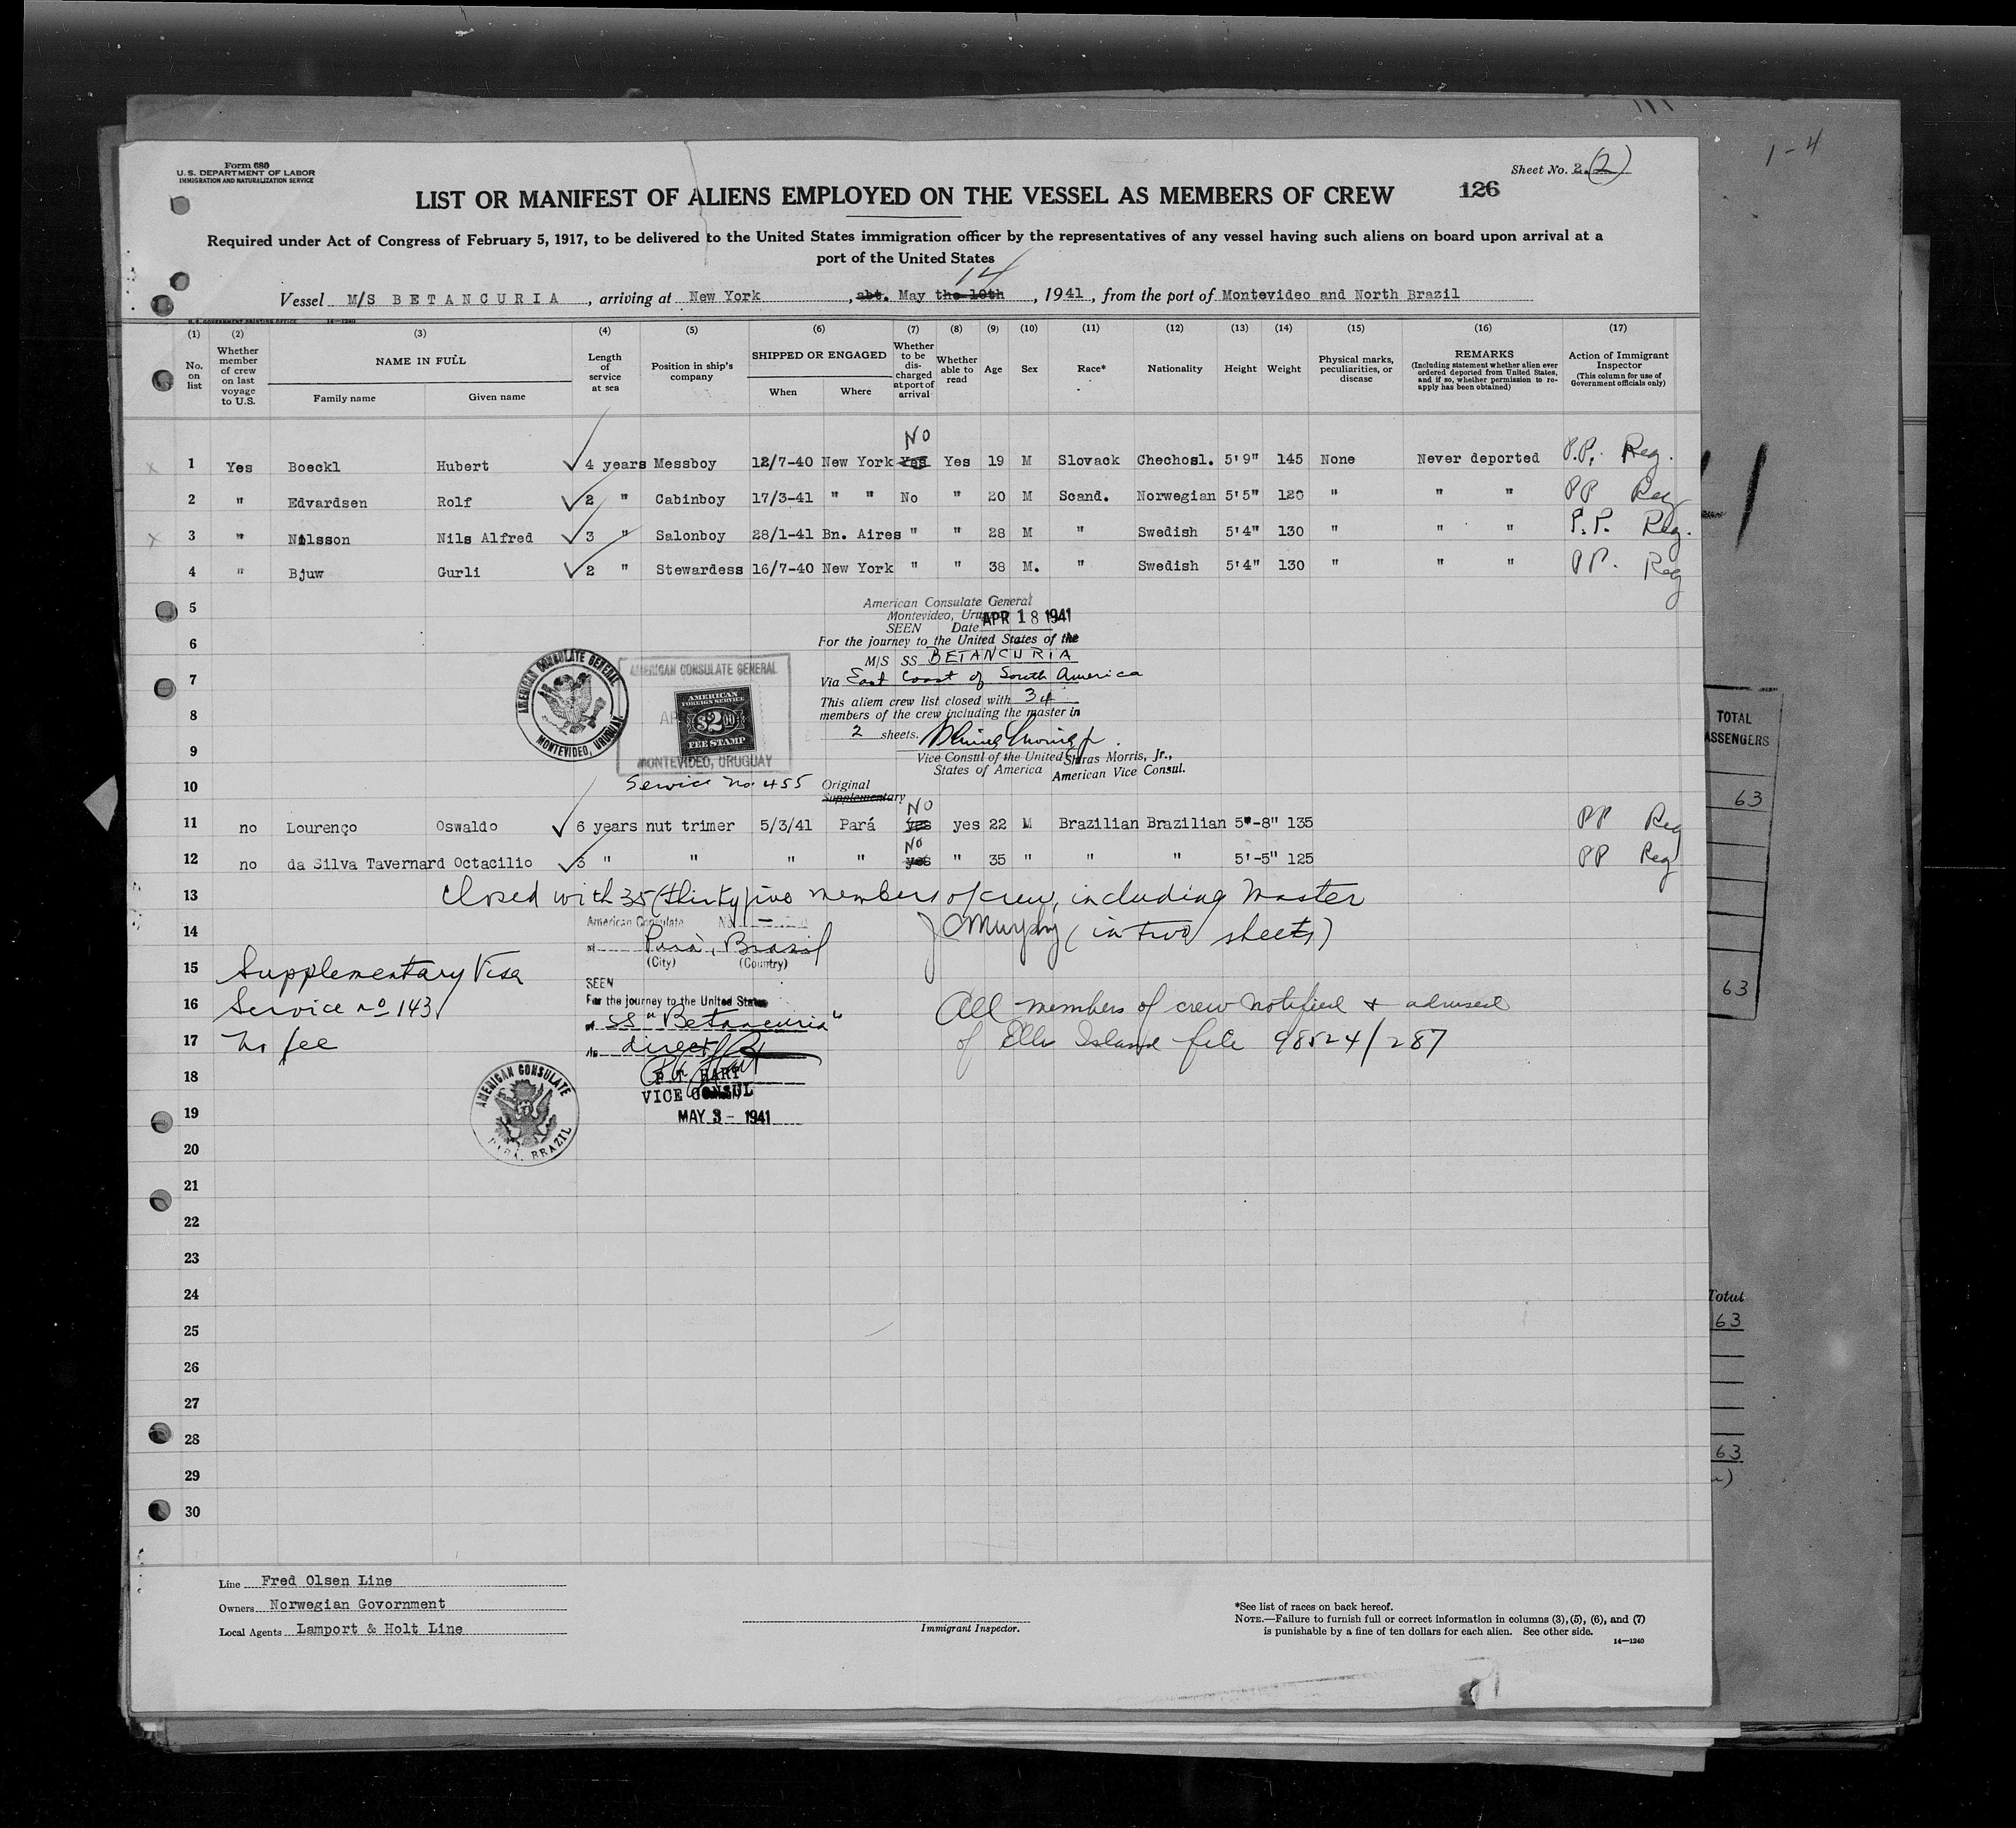 1-4
Form 680
U.S. DEPARTMENT OF LABOR
IMMIGRATION AND NATURALIZATION SERVICE
Sheet No. 2. (2)
LIST OR MANIFEST OF ALIENS EMPLOYED ON THE VESSEL AS MEMBERS OF CREW
126
Required under Act of Congress of February 5, 1917, to be delivered to the United States immigration officer by the representatives of any vessel having such aliens on board upon arrival at a
port of the United States
14
Vessel M/S BETANCURIA, arriving at New York, abt. May the 10th, 1941, from the port of Montevideo and North Brazil
U. S. GOVERNMENT PRINTING OFFICE 14-1240
(1) (2) (3) (4) (5) (6) (7) (8) (9) (10) (11) (12) (13) (14) (15) (16) (17)
No. on list
Whether member of crew on last voyage to U.S.
NAME IN FULL
Family name
Given name
Length of service at sea
Position in ship's company
SHIPPED OR ENGAGED
When
Where
Whether to be discharged at port of arrival
Whether able to read
Age
Sex
Race*
Nationality
Height
Weight
Physical marks, peculiarities, or disease
REMARKS
(Including statement whether alien ever ordered deported from United States, and if so, whether permission to reapply has been obtained)
Action of Immigrant Inspector
(This column for use of Government officials only)
No
1 Yes Boeckl Hubert 4 years Messboy 12/7-40 New York Yes Yes 19 M Slovack Chechosl. 5'9" 145 None Never deported P.P. Reg.
2 " Edvardsen Rolf 2 " Cabinboy 17/3-41 " " No " 20 M Scand. Norwegian 5'5" 120 " " " PP Reg
3 " Nilsson Nils Alfred 3 " Salonboy 28/1-41 Bn. Aires " " 28 M " Swedish 5'4" 130 " " " P.P. Reg.
4 " Bjuw Gurli 2 " Stewardess 16/7-40 New York " " 38 M. " Swedish 5'4" 130 " " " PP. Reg
5
American Consulate General
Montevideo, Uru
SEEN Date APR 18 1941
6
For the journey to the United States of the
M/S SS BETANCURIA
7
Via East Coast of South America
This aliem crew list closed with 34
8
members of the crew including the master in
2 sheets.
9
Vice Consul of the United
States of America
Shiras Morris, Jr.,
American Vice Consul.
AMERICAN CONSULATE GENERAL
MONTEVIDEO, URUGUAY
AMERICAN CONSULATE GENERAL
AMERICAN
FOREIGN SERVICE
$2.00
FEE STAMP
MONTEVIDEO, URUGUAY
10
Service No. 455
Original
Supplementary
No
11 no Lourenço Oswaldo 6 years nut trimer 5/3/41 Pará yes yes 22 M Brazilian Brazilian 5'-8" 135 PP Reg
No
12 no da Silva Tavernard Octacilio 3 " " " " yes " 35 " " " 5'-5" 125 PP Reg
13 Closed with 35 (thirty five members of crew, including Master
14
American Consulate No. —
JCMurphy (in two sheets)
at Pará, Brazil
(City) (Country)
15 Supplementary Visa
SEEN
16 Service no 143
For the journey to the United States
of SS "Betancuria"
All members of crew notified & advised
17 No fee
direct
of Ellis Island file 98524/287
18
P. T. HART
VICE CONSUL
19
MAY 3 - 1941
AMERICAN CONSULATE
PARA, BRAZIL
20
21
22
23
24
25
26
27
28
29
30
Line Fred Olsen Line
Owners Norwegian Govornment
Local Agents Lamport & Holt Line
Immigrant Inspector.
*See list of races on back hereof.
NOTE.—Failure to furnish full or correct information in columns (3), (5), (6), and (7)
is punishable by a fine of ten dollars for each alien. See other side.
14-1240
TOTAL
ASSENGERS
63
63
Total
63
63